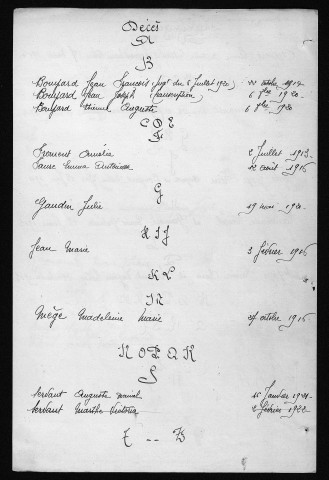 Décès
A
B
Bouffard Jean François (Jugt du 6 Juillet 1920) octobre 1912
Bouffard Jean Joseph (Transcription) 6 7bre 1920
Bouffard Etienne Auguste 6 7bre 1920
C D E
F
Froment Amélie 2 Juillet 1913
Faure Emma 12 août 1916
G
Gaudin Julie 19 mai 1920
H I J
Jean Marie 3 février 1916
K L
M
Mège Madeleine Marie 27 octobre 1916
N O P Q R
S
Servant Auguste Janvier 1921
Servant Marthe Victoria 2 février 1922
T -- Z